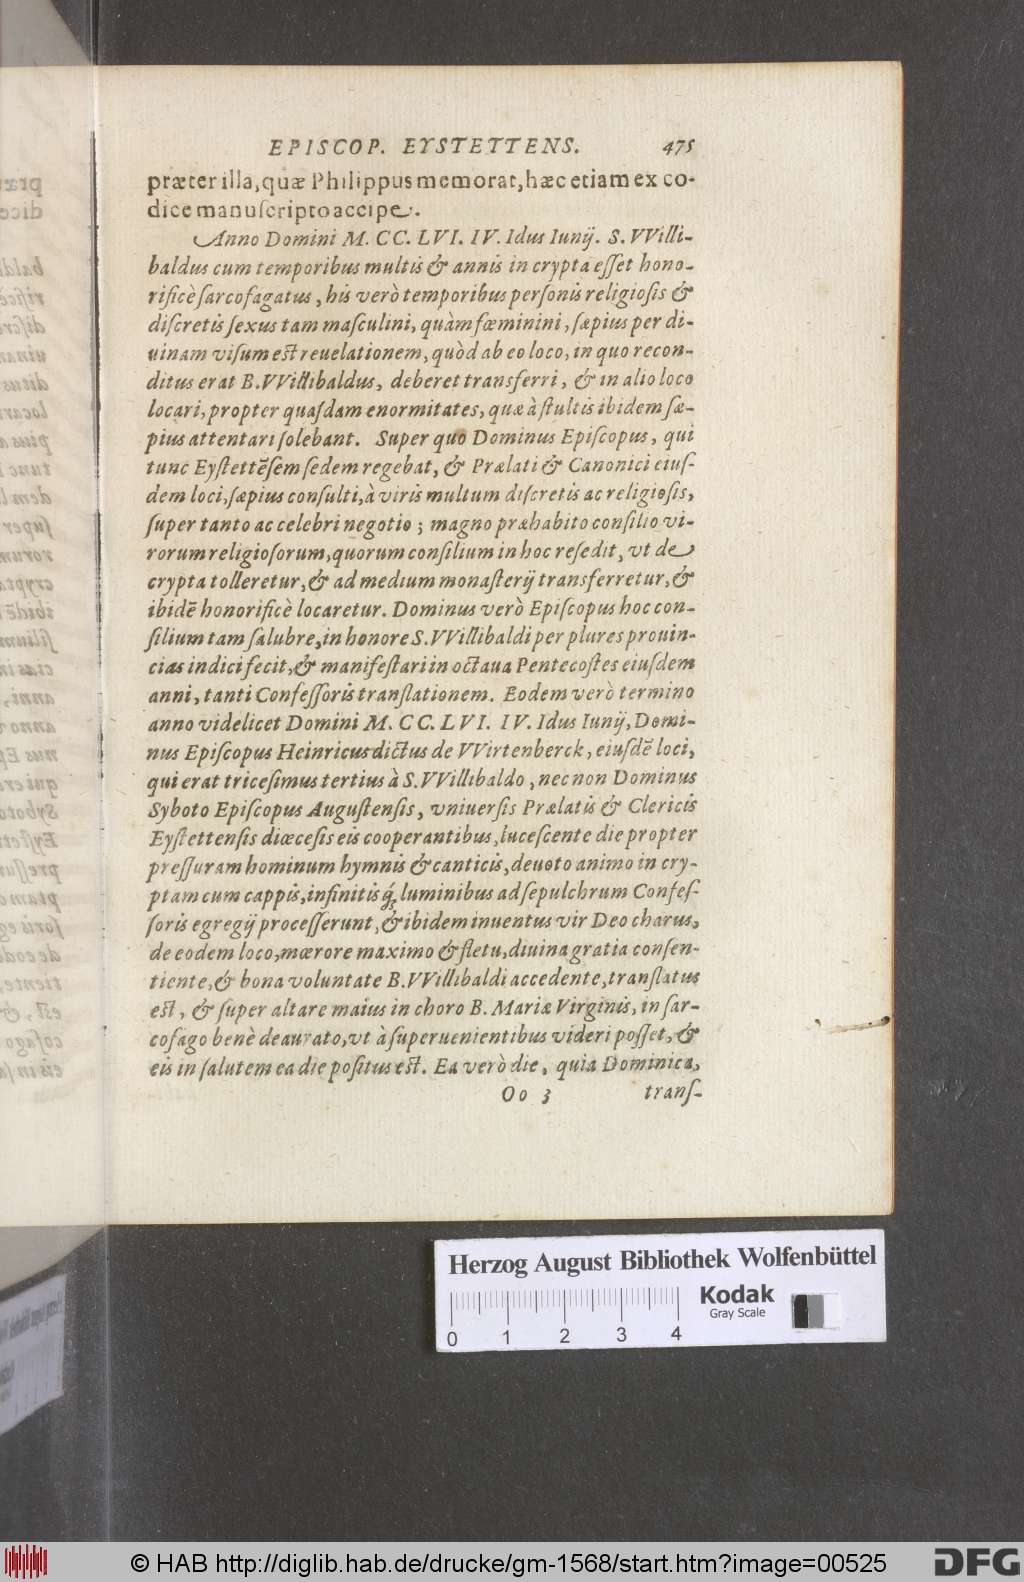 EPISCOP. EYSTETTENS. 475
præter illa, quæ Philippus memorat, hæc etiam ex co-
dice manuſcripto accipe.
Anno Domini M. CC. LVI. IV. Idus Iunij. S. VVilli-
baldus cum temporibus multis & annis in crypta eſſet hono-
rificè ſarcofagatus, his verò temporibus perſonis religioſis &
diſcretis ſexus tam maſculini, quàm fœminini, ſæpius per di-
uinam viſum eſt reuelationem, quòd ab eo loco, in quo recon-
ditus erat B. VVillibaldus, deberet transferri, & in alio loco
locari, propter quaſdam enormitates, quæ à ſtultis ibidem ſæ-
pius attentari ſolebant. Super quo Dominus Epiſcopus, qui
tunc Eyſtettẽſem ſedem regebat, & Prælati & Canonici eiuſ-
dem loci, ſæpius conſulti, à viris multum diſcretis ac religioſis,
ſuper tanto ac celebri negotio; magno præhabito conſilio vi-
rorum religioſorum, quorum conſilium in hoc reſedit, vt de
crypta tolleretur, & ad medium monaſterij transferretur, &
ibidẽ honorificè locaretur. Dominus verò Epiſcopus hoc con-
ſilium tam ſalubre, in honore S. VVillibaldi per plures prouin-
cias indici fecit, & manifeſtari in octaua Pentecoſtes eiuſdem
anni, tanti Confeſſoris tranſlationem. Eodem verò termino
anno videlicet Domini M. CC. LVI. IV. Idus Iunij, Domi-
nus Epiſcopus Heinricus dictus de VVirtenberck, eiuſdẽ loci,
qui erat triceſimus tertius à S. VVillibaldo, nec non Dominus
Syboto Epiſcopus Auguſtenſis, vniuerſis Prælatis & Clericis
Eyſtettenſis diœceſis eis cooperantibus, luceſcente die propter
preſſuram hominum hymnis & canticis, deuoto animo in cry-
ptam cum cappis, infinitisq́; luminibus ad ſepulchrum Confeſ-
ſoris egregij proceſſerunt, & ibidem inuentus vir Deo charus,
de eodem loco, mœrore maximo & fletu, diuina gratia conſen-
tiente, & bona voluntate B. VVillibaldi accedente, tranſlatus
eſt, & ſuper altare maius in choro B. Mariæ Virginis, in ſar-
cofago benè deaurato, vt à ſuperuenientibus videri poſſet, &
eis in ſalutem ea die poſitus eſt. Ea verò die, quia Dominica,
Oo 3 tranſ-
Herzog August Bibliothek Wolfenbüttel
Kodak
Gray Scale
0 1 2 3 4
© HAB http://diglib.hab.de/drucke/gm-1568/start.htm?image=00525
DFG